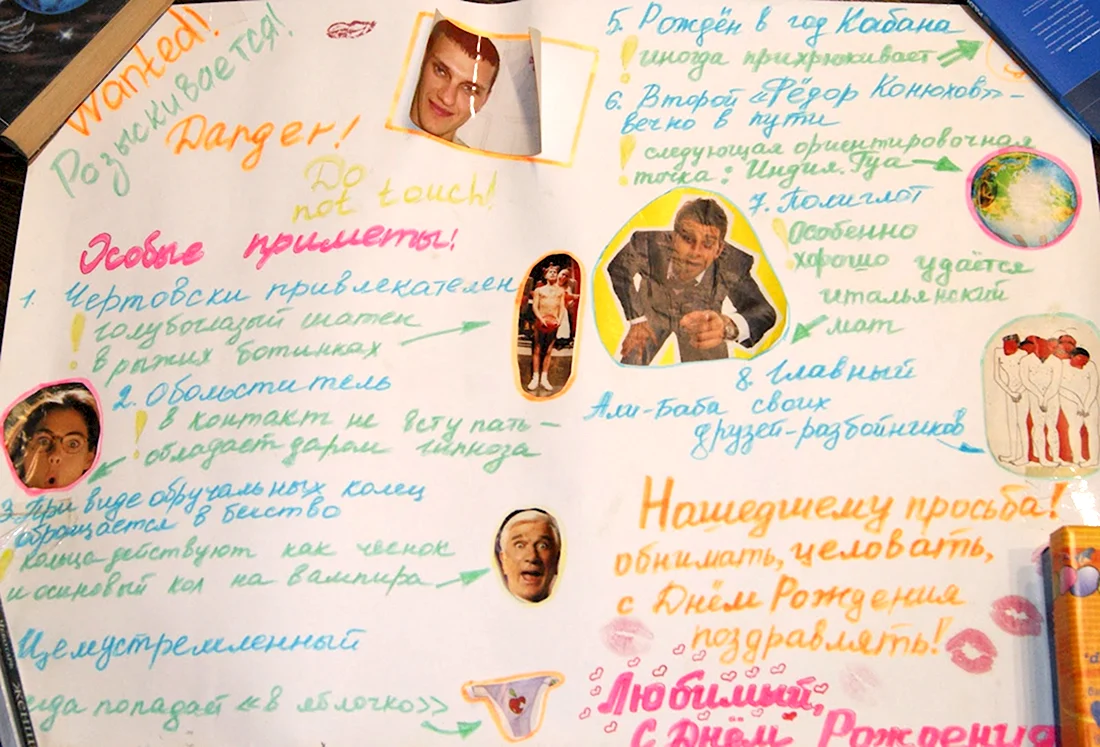 Wanted!
Разыскивается!
Danger!
Do
not touch!
Особые приметы!
1. Чертовски привлекателен
! голубоглазый шатен
в рыжих ботинках
2. Обольститель
! в контакт не вступать –
обладает даром гипноза
3. При виде обручальных колец
обращается в бегство
! кольца действуют как чеснок
и осиновый кол на вампира
Целеустремленный
попадай «в яблочко»
5. Рождён в год Кабана
! иногда прихрюкивает
6. Второй «Фёдор Конюхов» –
вечно в пути
! следующая ориентировочная
точка: Индия. Гуа
7. Полиглот
! Особенно
хорошо удаётся
итальянский
мат
8. Главный
Али-Баба своих
друзей-разбойников
Нашедшему просьба!
обнимать, целовать,
с Днём Рождения
поздравлять!
Любимый,
с Днём Рождения